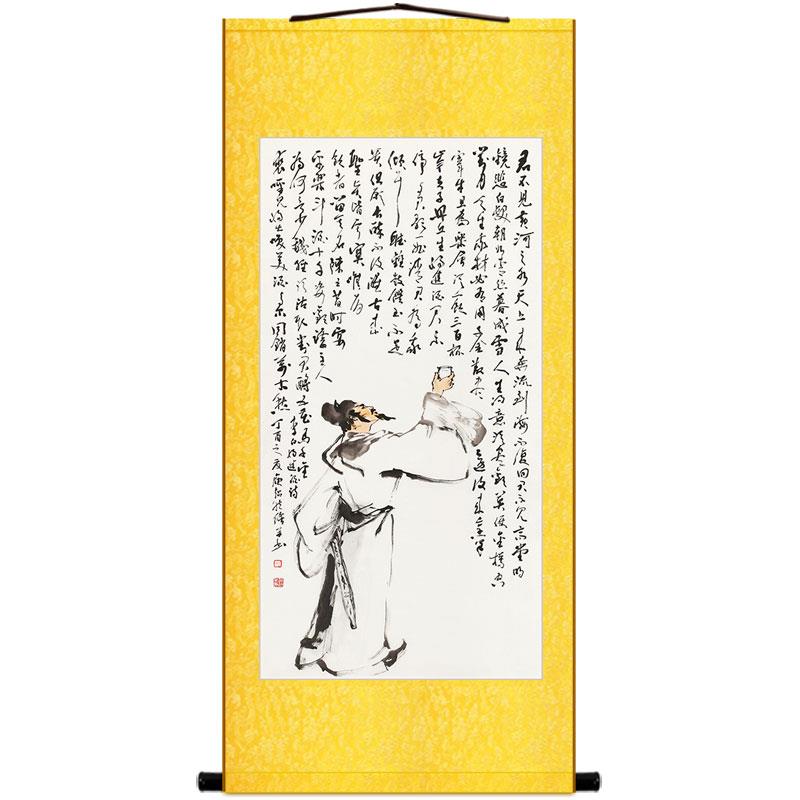 君不見黃河之水天上來奔流到海不復回君不見高堂明
鏡悲白髮朝如青絲暮成雪人生得意須盡歡莫使金樽空
對月天生我材必有用千金散盡還復來烹羊
宰牛且為樂會須一飲三百杯
岑夫子丹丘生將進酒君不
停與君歌一曲請君為我
傾耳聽鐘鼓饌玉不足
貴但願長醉不復醒古來
聖賢皆寂寞惟有
飲者留其名陳王昔時宴
平樂斗酒十千恣歡謔主人
為何言少錢徑須沽取對君酌五花馬千金
裘呼兒將出換美酒與爾同銷萬古愁
李白將進酒詩
丁酉之夏